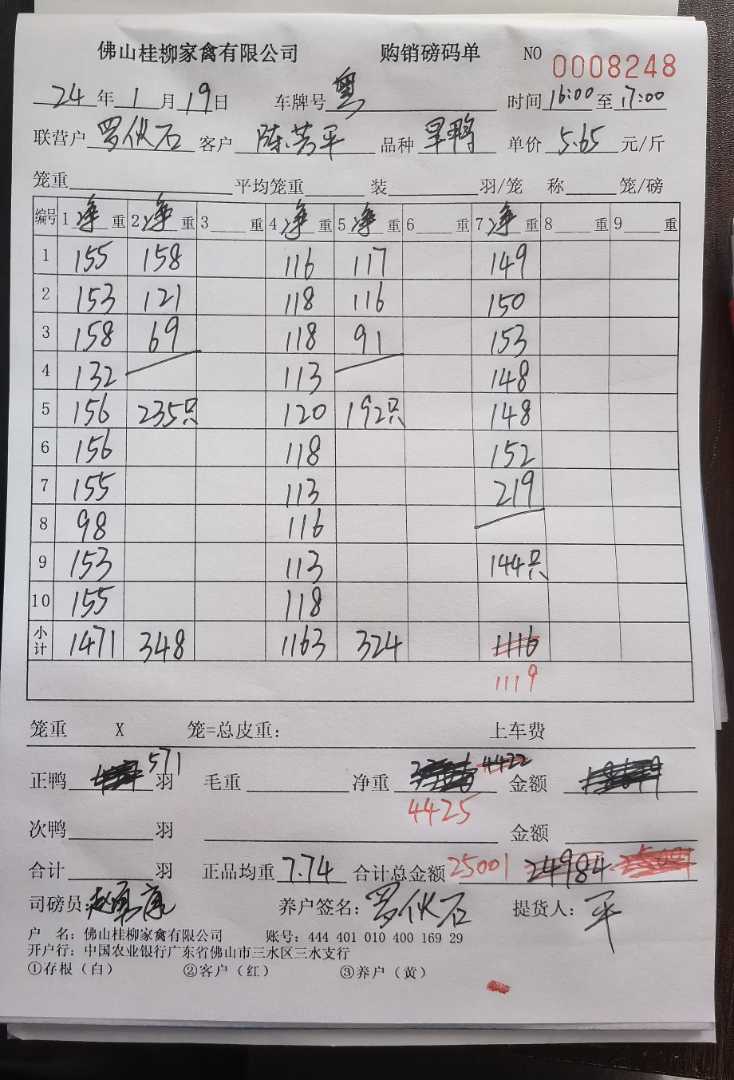 佛山桂柳家禽有限公司 购销磅码单 NO 0008248
24年1月19日 车牌号 粤 时间16:00至17:00
联营户 罗伙石 客户 陈芳平 品种 旱鸭 单价 5.65 元/斤
笼重 平均笼重 装 羽/笼 称 笼/磅
编号 1净重 2净重 3重 4净重 5净重 6重 7净重 8重 9重
1 155 158 116 117 149
2 153 121 118 116 150
3 158 69 118 91 153
4 132 113 148
5 156 235只 120 192只 148
6 156 118 152
7 155 113 219
8 98 116
9 153 113 144只
10 155 118
小计 1471 348 1163 324 1116
1119
笼重 X 笼=总皮重: 上车费
正鸭 571 羽 毛重 净重 4422 金额
4425
次鸭 羽 金额
合计 羽 正品均重 7.74 合计总金额 25001 24984
司磅员: 养户签名: 罗伙石 提货人: 平
户 名: 佛山桂柳家禽有限公司 账号: 444 401 010 400 169 29
开户行: 中国农业银行广东省佛山市三水区三水支行
①存根(白) ②客户(红) ③养户(黄)